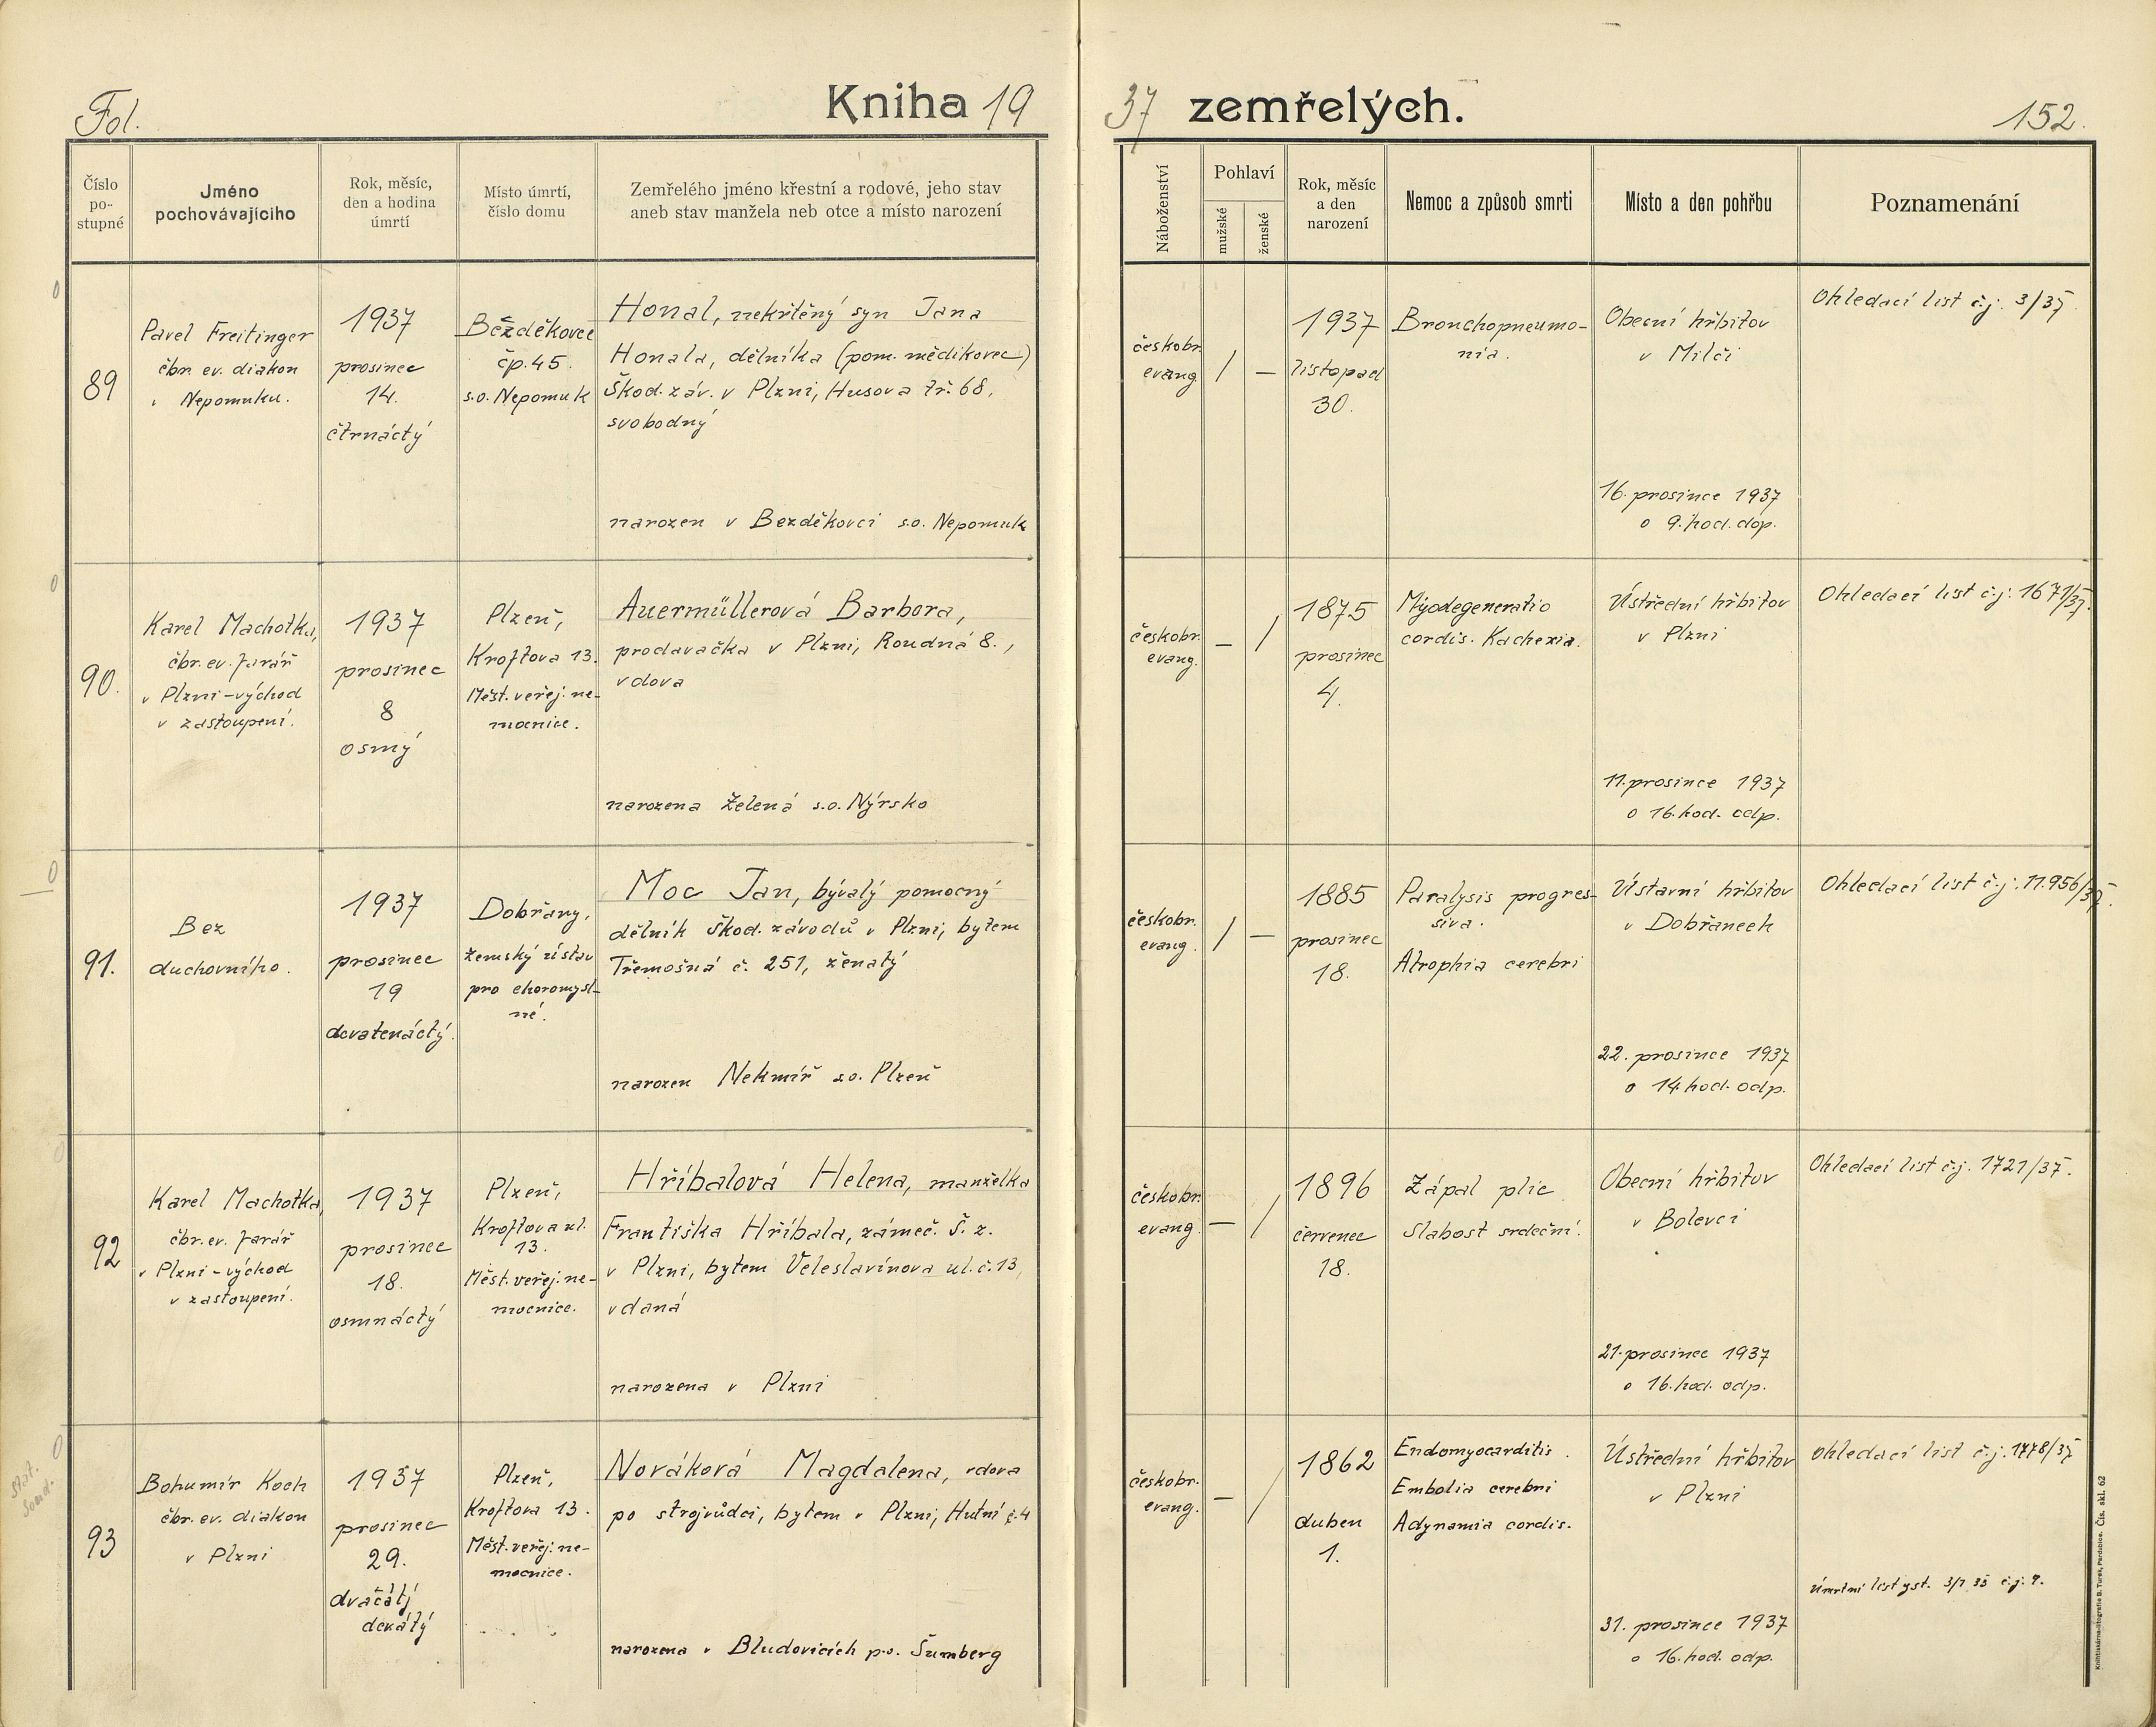 Fol.
Kniha 19
37 zemřelých.
152.
Číslo
po-
stupné
Jméno
pochovávajícího
Rok, měsíc,
den a hodina
úmrtí
Místo úmrtí,
číslo domu
Zemřelého jméno křestní a rodové, jeho stav
aneb stav manžela neb otce a místo narození
Náboženství
Pohlaví
mužské
ženské
Rok, měsíc
a den
narození
Nemoc a způsob smrti
Místo a den pohřbu
Poznamenání
89
Pavel Freitinger
čbr. ev. diakon
v Nepomuku.
1937
prosinec
14.
čtrnáctý
Bezděkovec
čp. 45.
s.o. Nepomuk
Honal, nekřtěný syn Jana
Honala, dělníka (pom. mědikovec)
Škod. záv. v Plzni, Husova tř. 68,
svobodný
narozen v Bezděkovci s.o. Nepomuk
českobr.
evang.
/
—
1937
listopad
30.
Bronchopneumo-
nia.
Obecní hřbitov
v Milči
16. prosince 1937
o 9. hod. dop.
Ohledací list č.j. 3/37.
90.
Karel Machotka,
čbr. ev. farář
v Plzni-východ
v zastoupení.
1937
prosinec
8
osmý
Plzeň,
Kroftova 13.
Měst. veřej. ne-
mocnice.
Auermüllerová Barbora,
prodavačka v Plzni, Roudná 8.,
vdova
narozena Zelená s.o. Nýrsko
českobr.
evang.
—
/
1875
prosinec
4.
Myodegeneratio
cordis. Kachexia.
Ústřední hřbitov
v Plzni
11. prosince 1937
o 16. hod. odp.
Ohledací list č.j. 1671/37.
91.
Bez
duchovního.
1937
prosinec
19
devatenáctý.
Dobřany,
zemský ústav
pro choromysl-
né.
Moc Jan, bývalý pomocný
dělník Škod. závodů v Plzni, bytem
Třemošná č. 251, ženatý
narozen Nekmíř s.o. Plzeň
českobr.
evang.
/
—
1885
prosinec
18.
Paralysis progres-
siva.
Atrophia cerebri
Ústavní hřbitov
v Dobřanech
22. prosince 1937
o 14. hod. odp.
Ohledací list č.j. 11.956/37.
92
Karel Machotka,
čbr. ev. farář
v Plzni-východ
v zastoupení.
1937
prosinec
18.
osmnáctý
Plzeň,
Kroftova ul.
13.
Měst. veřej. ne-
mocnice.
Hříbalová Helena, manželka
Františka Hříbala, zámeč. Š. z.
v Plzni, bytem Veleslavínova ul. č. 13,
vdaná
narozena v Plzni
českobr.
evang.
—
/
1896
červenec
18.
Zápal plic
Slabost srdeční.
Obecní hřbitov
v Bolevci
21. prosinec 1937
o 16. hod. odp.
Ohledací list č.j. 1721/37.
93
Bohumír Koch
čbr. ev. diakon
v Plzni
1937
prosinec
29.
dvacátý
devátý
Plzeň,
Kroftova 13.
Měst. veřej. ne-
mocnice.
Nováková Magdalena, vdova
po strojvůdci, bytem v Plzni, Hutní č. 4
narozena v Bludovicích p.o. Šumberg
českobr.
evang.
—
/
1862
duben
1.
Endomyocarditis.
Embolia cerebri
Adynamia cordis.
Ústřední hřbitov
v Plzni
31. prosince 1937
o 16. hod. odp.
Ohledací list č.j. 1778/37
Úmrtní list
Knihtiskárna-litografie B. Turek, Pardubice. Čís. skl. 62